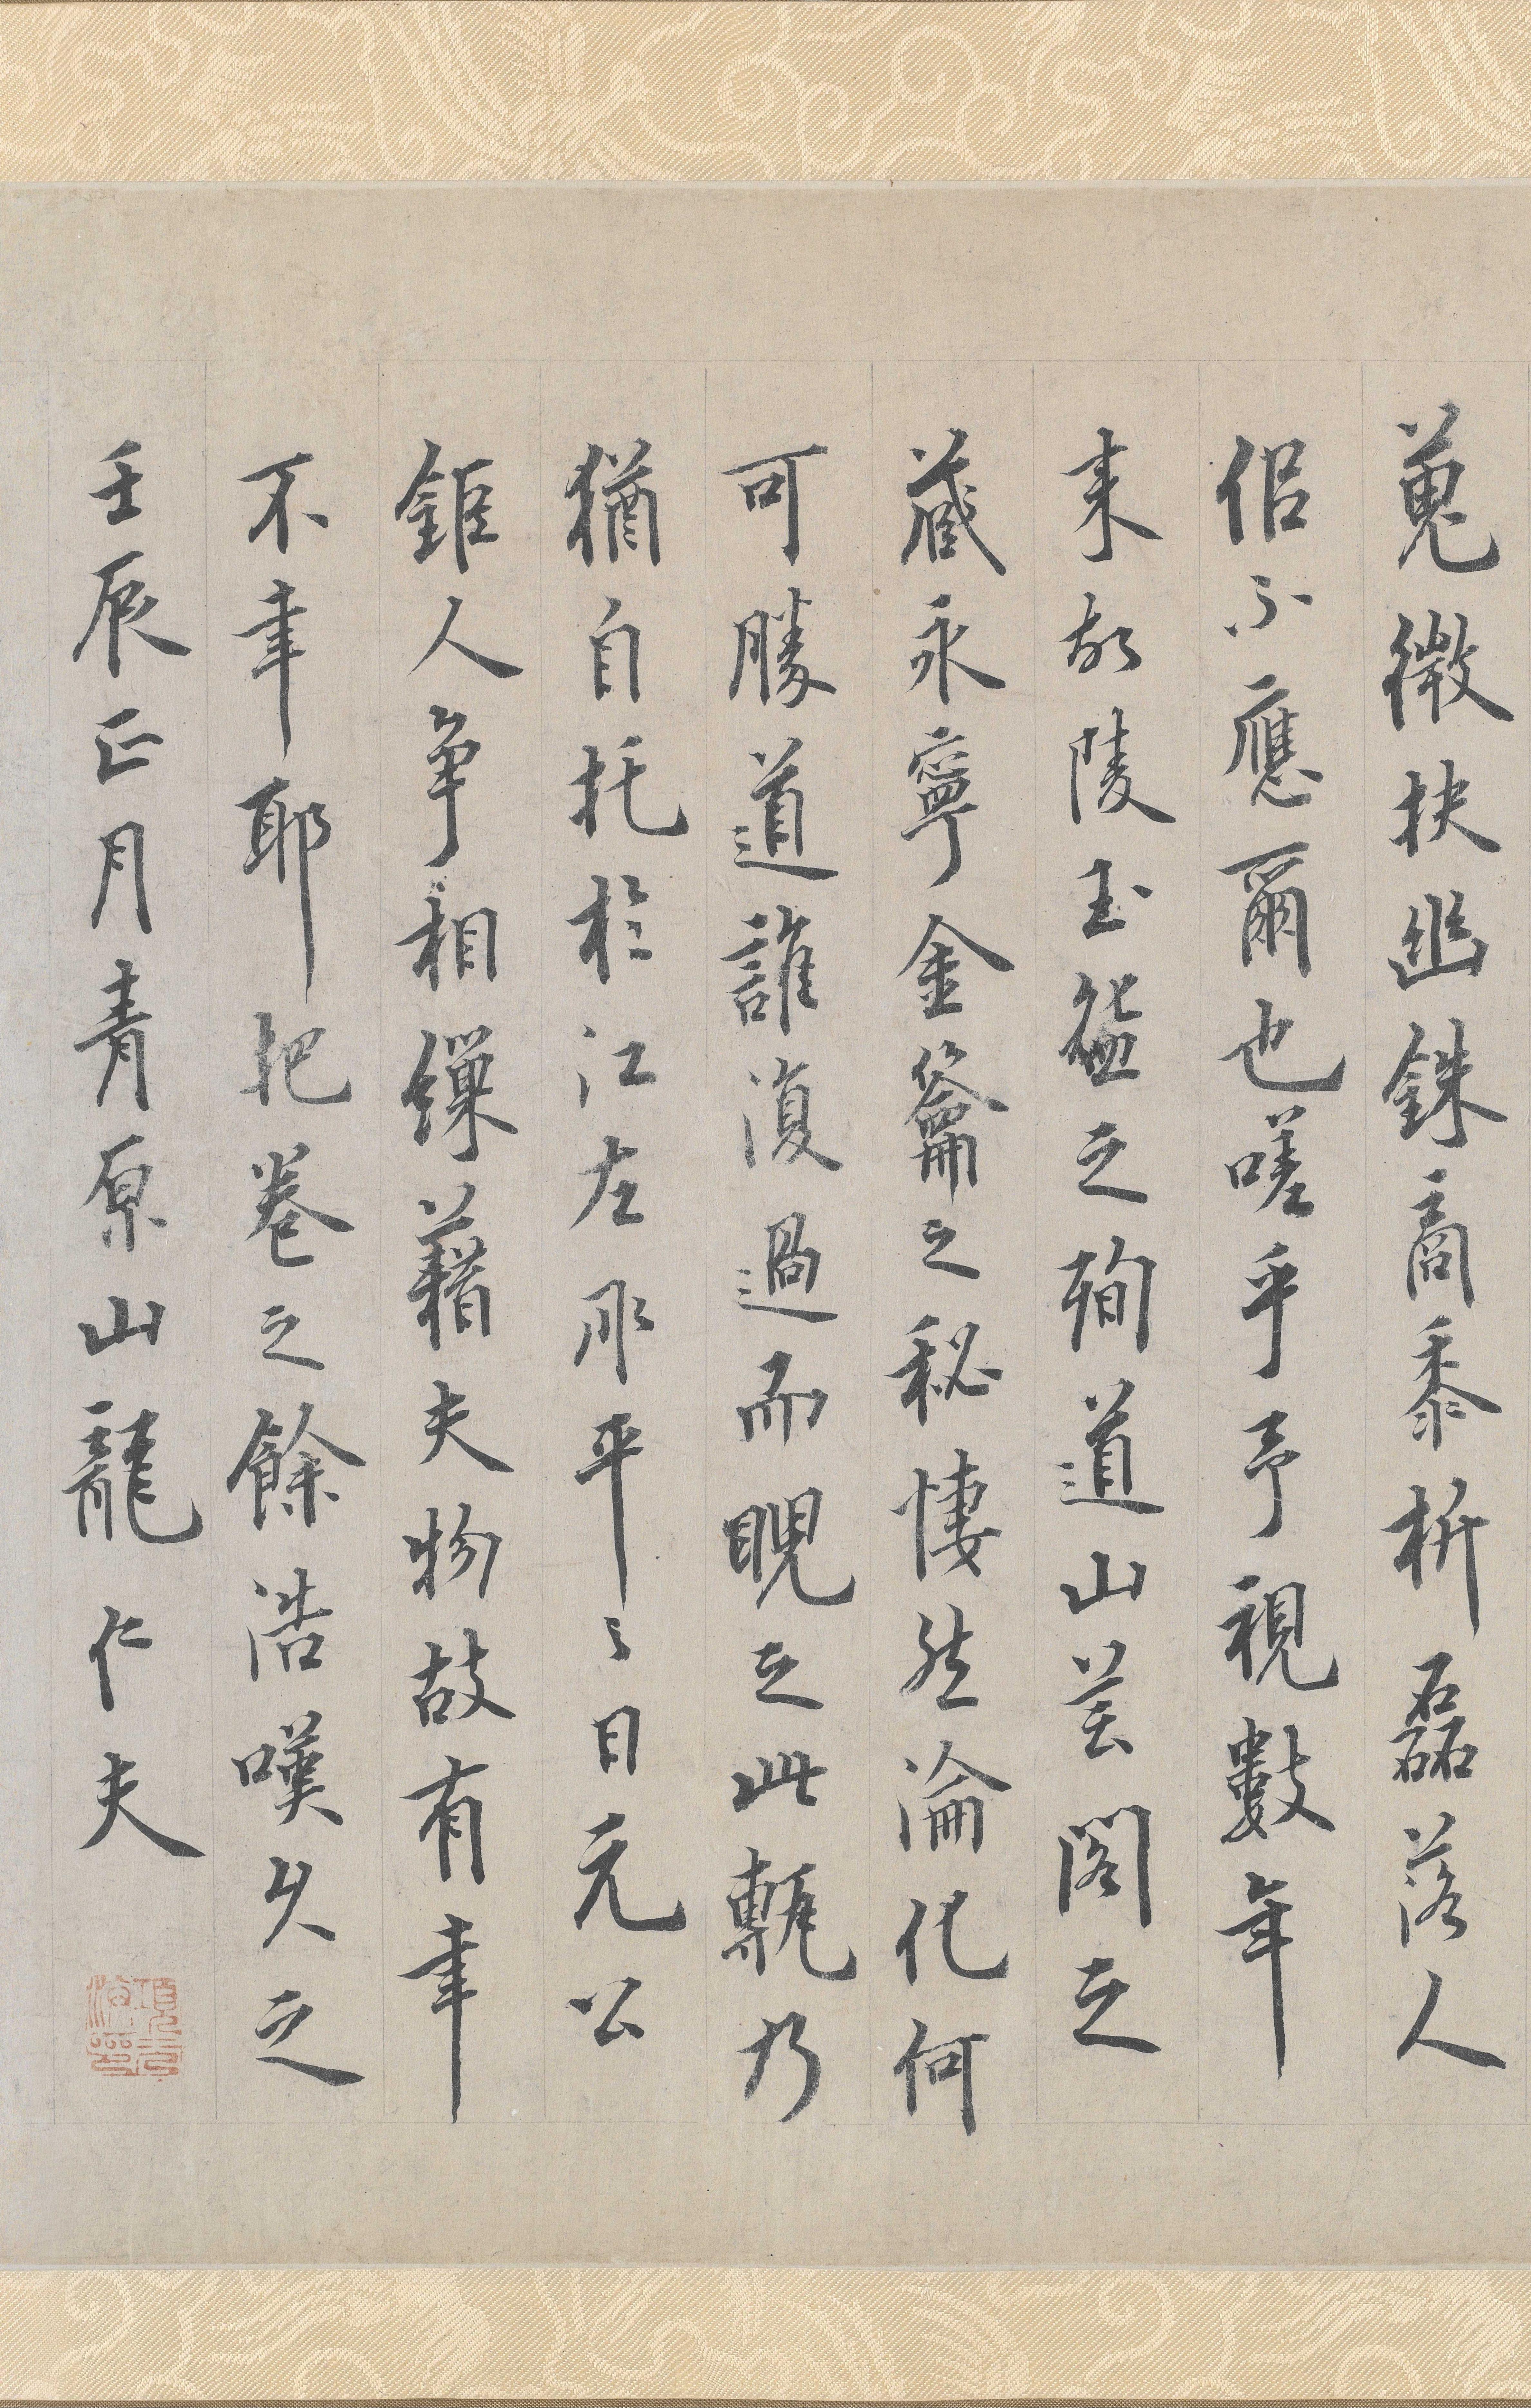 蒐徵抉幽銖商黍析磊落人
侶不應爾也嗟乎予視數年
来故陵玉盌之殉道山芸閣之
藏永寧金籥之秘悽然淪化何
可勝道誰復過而睨之此軝乃
猶自托於江左承平之日元公
鉅人爭相繅藉夫物故有幸
不幸耶把卷之餘浩嘆久之
壬辰正月青原山龍仁夫
項元汴印